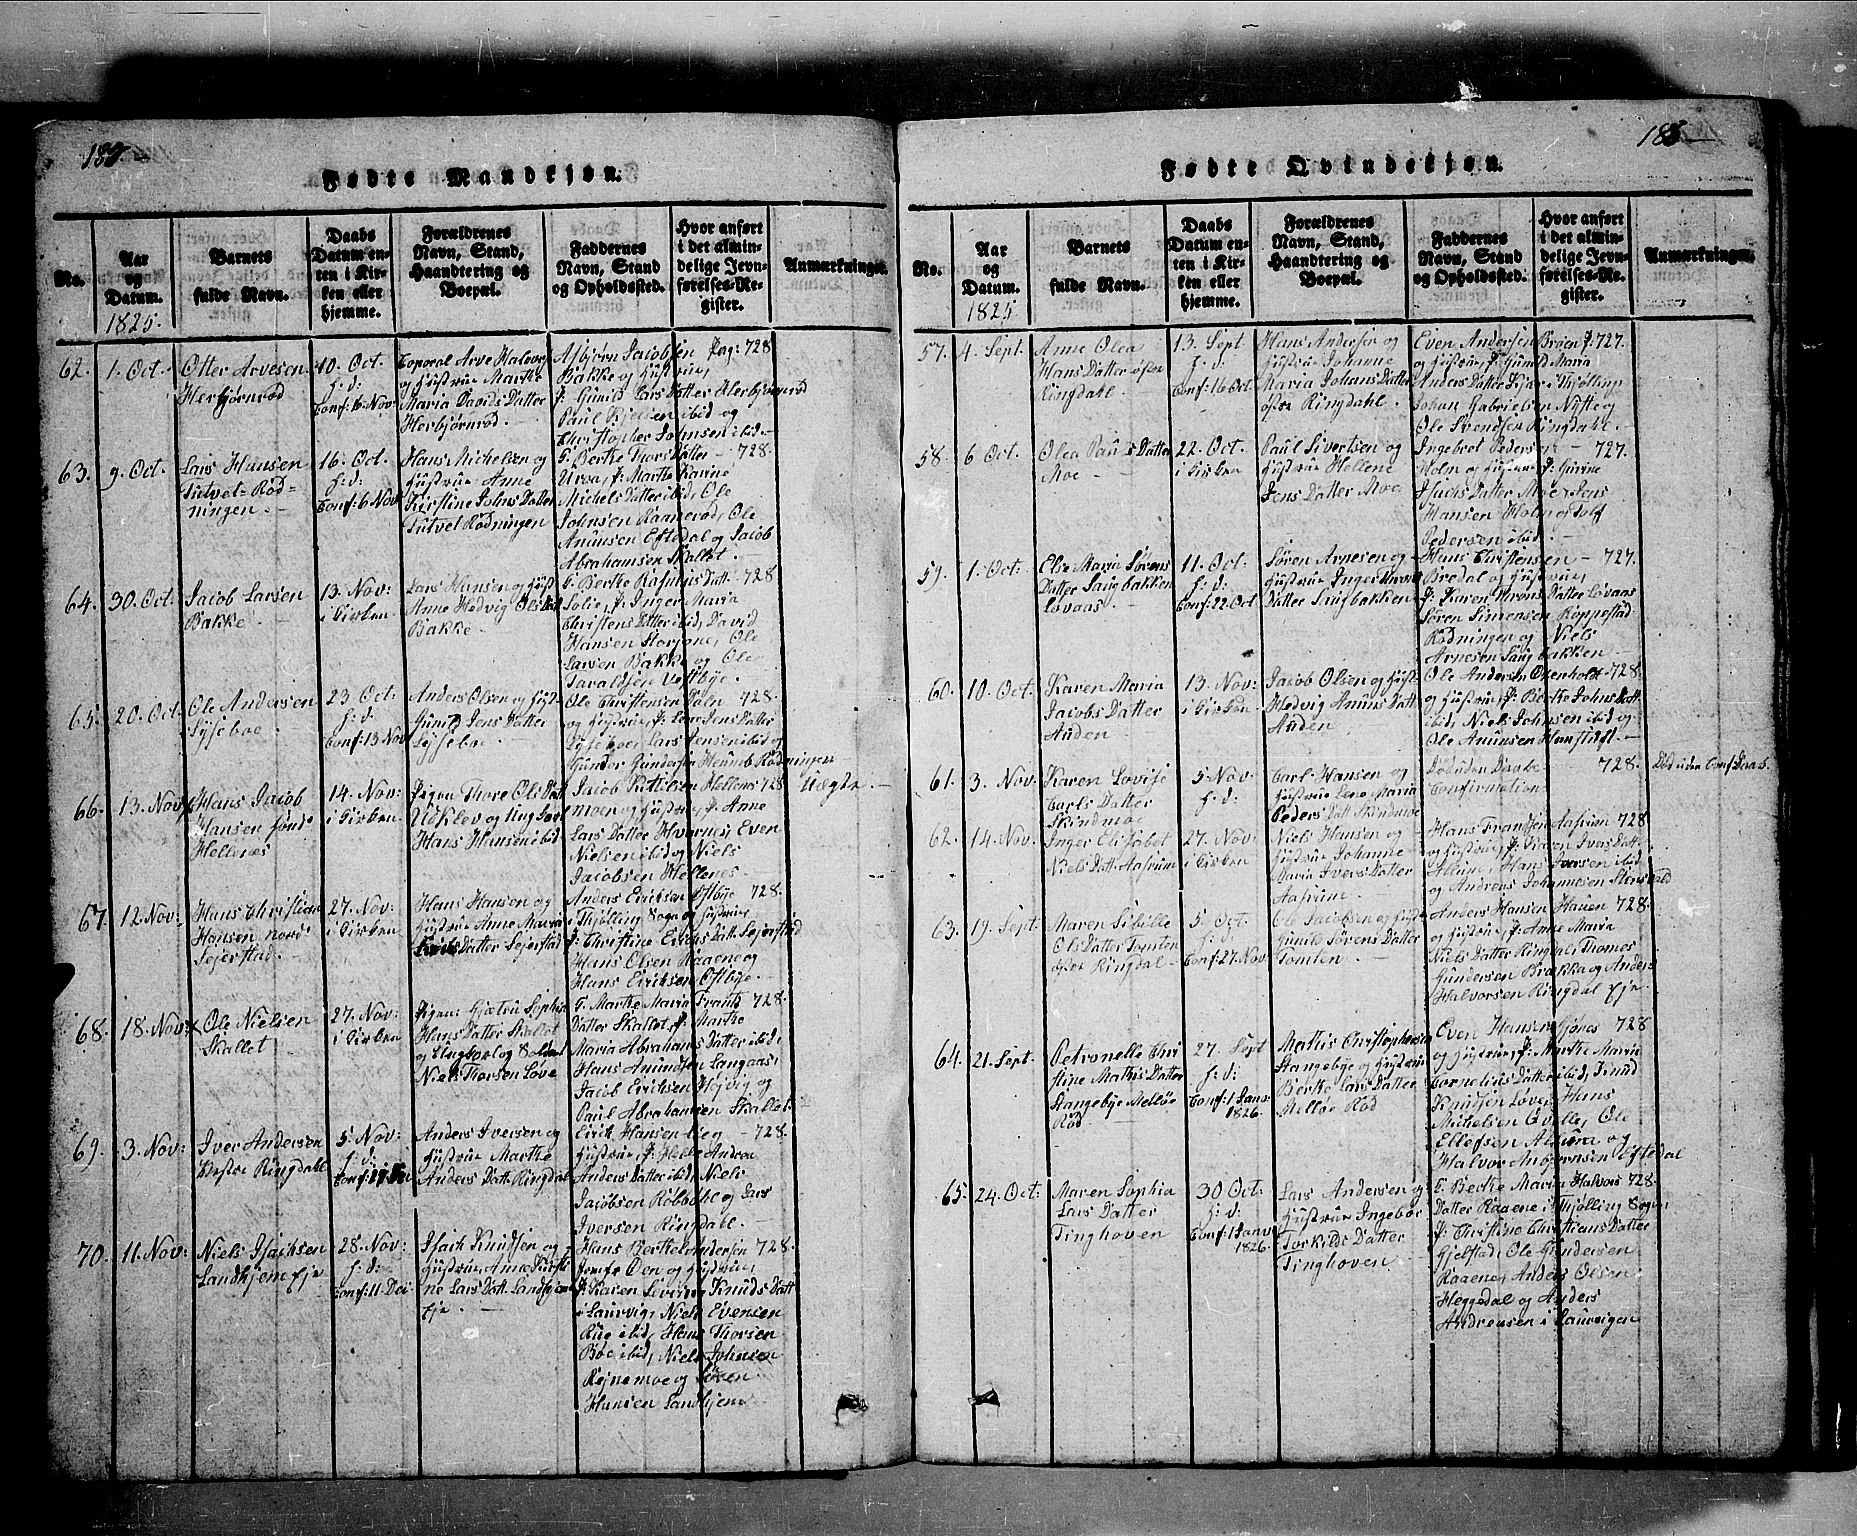 187.
Fødte Mandkjøn.
No.
Aar
og
Datum.
1825.
Barnets
fulde Navn.
Daabs
Datum en-
ten i Kir-
ken eller
hjemme.
Forældrenes
Navn, Stand,
Haandtering og
Boepæl.
Faddernes
Navn, Stand
og Opholdssted.
Hvor anført
i det almin-
delige Jevn-
førelses-Re-
gister.
Anmærkninger.
62.
1. Oct.
Otter Arvesen
Herbjørnrød
10. Oct.
h: d:
Conf: 6 Nov:
Coporal Arve Halvors
og Hustrue Marthe
Maria Davids Datter
Herbjørnrød.
Asbjørn Jacobsen Pag: 728
Bakke og Hustrue,
P: Gunild Lars Datter Herbjørnrød
Paul Bjelsen ibid og
Christopher Johnsen ibid.
63.
9. Oct.
Lars Hansen
Tutvet-Rød-
ningen.
16. Oct.
h: d:
Conf: 6 Nov:
Hans Michelsen og
Hustrue Anne
Kirstine Johns Datter
Tutvet Rødningen
G. Berthe Thors Datter 728.
Urva, P: Marthe Karine
Michels Datter ibid, Ole
Johnsen Raanerød, Ole
Amunsen Eftedal og Jacob
Abrahamsen Skallet.
64.
30. Oct.
Jacob Larsen
Bakke
13. Nov:
i Kirken
Lars Hansen og Hust:
Anne Hedvig Ols Dat
Bakke.
G. Berthe Rasmus Datt. 728
Solie, P: Inger Maria
Christens Datter ibid, David
Hansen Storjone, Ole
Larsen Bakke og Ole
Taraldsen Vestbye.
65.
20. Oct:
Ole Andersen
Lyseboe.
23 Oct:
h: d:
Conf: 13 Nov
Anders Olsen og Hust:
Gunild Jens Datter
Lyseboe
Ole Christensen 728.
og Hustrue, P: Jens Datter
Lyseboe, Lars Jensen ibid og
Gunder Gundersen Rødningen
66.
13. Nov:
Hans Jacob
Hansen sønd:
Hellenæs
14. Nov:
i Kirken
Pigen Thore Ols Datt
Udklev og Ung
Hans Hansen ibid
Jacob Kittilsen Hellens 728
Moen og Hustrue, P: Anne
Lars Datter Hvarnes, Even
Nielsen ibid og Niels
Jacobsen Hellenes
Uægte.
67.
12. Nov:
Hans Christian
Hansen nord:
Sejerstad.
27. Nov:
i Kirken
Hans Hansen og
Hustrue Anne Maria
Datter Sejerstad
Anders Erichsen Østbye 728.
Thjølling Sogn og Hustrue
P: Christine Erichs Datt Sejerstad
Hans Olsen Raaene og
Hans Eiriksen Østbye.
68.
18. Nov:
Ole Nielsen
Skallet
27. Nov:
i Kirken
Pigen: Gjætru Sophia
Hans Datter Skallet
og Ungkarl og Soldat
Niels Thorsen Løve
G. Marthe Maria Frants 728.
Datter Skallet, P: Marthe
Maria Abrahams Datter ibid,
Hans Amundsen Langaas
Jacob Erichsen Højvig og
Paul Abrahamsen Skallet.
69.
3. Nov:
Iver Andersen
Vestre Ringdahl
5 Nov:
h: d:
Anders Iversen og
Hustrue Marthe
Anders Datt. Ringdal
Eirik Hansen Lie og 728.
Hustrue, P: Helle Andrea
Anders Datter ibid, Niels
Jacobsen Røbbdal og Lars
Iversen Ringdahl.
70.
11. Nov:
Niels Isachsen
Landhjem Eje
28. Nov:
h: d:
Conf: 11 Dec
Isach Knudsen og
Hustrue Anne Kirsti
ne Lars Datt. Landhjem
Eje
Hans Berthel Andersen 728.
Jomfr: Øen og Hustrue,
P: Karen Severine Knuds Datt
i Laurvig, Niels Evensen
Rue ibid, Hans Thorsen
Bøe ibid, Niels Johnsen
Rejnemoe og Søren
Hansen Landhjem
188
Fødte Qvindekjøn.
No.
Aar
og
Datum.
1825
Barnets
fulde Navn.
Daabs
Datum en-
ten i Kir-
ken eller
hjemme.
Forældrenes
Navn, Stand,
Haandtering og
Boepæl.
Faddernes
Navn, Stand
og Opholdssted.
Hvor anført
i det almin-
delige Jevn-
førelses-Re-
gister.
Anmærkninger.
57.
4. Sept.
Anne Olea
Hans Datter østre
Ringdahl.
13. Sept
h: d:
Conf: 16 Oct.
Hans Andersen og
Hustrue Johanne
Maria Johans Datter
østre Ringdahl.
Even Andersen Brøen P: 727.
og Hustrue, P: Gunild Maria
Anders Datter Kjær i Thjølling
Johan Gabrielsen Nyste og
Ole Svendsen Ringdahl.
58.
6 Oct.
Olea Pauls Datter
Moe
22. Oct.
i Kirken
Paul Sivertsen og
Hustrue Hellene
Jens Datter Moe
Ingebret Pedersen 727.
Holm og Hustrue P: Gurine
Isachs Datter Moe, Jens
Hansen Holm og Rolf
Pedersen ibid.
59.
1. Oct:
Else Maria Sørens
Datter Saugbakken
Løvaas.
11. Oct:
h: d:
Conf: 22 Oct
Søren Arnesen og
Hustrue Inger
Datter Saugbakken
Hans Christensen 727.
Bredal og Hustrue,
P: Karen Datter Løvaas
Søren Simensen Røppestad
Rødningen og Niels
Arnesen Saugbakken.
60.
10. Oct:
Karen Maria
Jacobs Datter
Auden
13. Nov:
i Kirken
Jacob Olsen og Hust:
Hedvig Amuns Datt
Auden
Ole Andersen Øxenholt 728
og Hustrue, P: Berthe Johns Datt
ibid, Niels Johnsen ibid og
Ole Amunsen
61.
3. Nov:
Karen Lovise
Carls Datter
Skindmoe
5. Nov:
h: d:
Carl Hansen og
Hustrue Lene Maria
Peders Datt. Skindmoe
Død uden Daabs- 728.
Confirmation.
Død uden Conf:
62.
14. Nov.
Inger Elisabet
Niels Datt. Aasrum
27. Nov:
i Kirken
Niels Hansen og
Hustrue Johanne
Maria Ivers Datter
Aasrum.
Hans Frantsen Aasrum 728
og Hustrue, P: Siren Ivers Datt.
Allum, Hans Iversen ibid
og Andreas Johannesen Stensvold
63.
19. Sept.
Maren Sibille
Ols Datter Tomten
østre Ringdal
5. Oct
h: d:
Conf: 27. Nov:
Ole Jacobsen og Hust:
Gunild Sørens Datter
Tomten
Anders Hansen Hauen 728.
og Hustrue, P: Anne Maria
Niels Datter Ringdal, Thomes
Gundersen Brekka og Anders
Halvorsen Ringdal Eje
64.
21. Sept.
Petronelle Chri
stine Mathis Datter
Stangebye Melløe
Rød
27. Sept
h: d:
Conf: 1 Janv:
1826.
Mathis Christophersen
Stangebye og Hustrue
Berthe Lars Datter
Melløe Rød
Even Hansen 728
og Hustrue, P: Marthe Maria
Cornelius Datter ibid, Knud
Knudsen Løve, Hans
Michelsen Qville, Ole
Ellefsen og
Halvor Anbjørnsen Eftedal
65.
24. Oct:
Maren Sophia
Lars Datter
Tinghoven
30 Oct:
h: d:
Conf: 1 Janv:
1826.
Lars Andersen og
Hustrue Ingebor
Torkilds Datter
Tinghoven
G. Berthe Maria Halvors 728.
Datter Raaene i Thjølling Sogn,
P: Christine Christians Datter
Gjelstad, Ole Gundersen
Raaene, Anders Olsen
Heggedal og Anders
Andreasen i Laurvigen